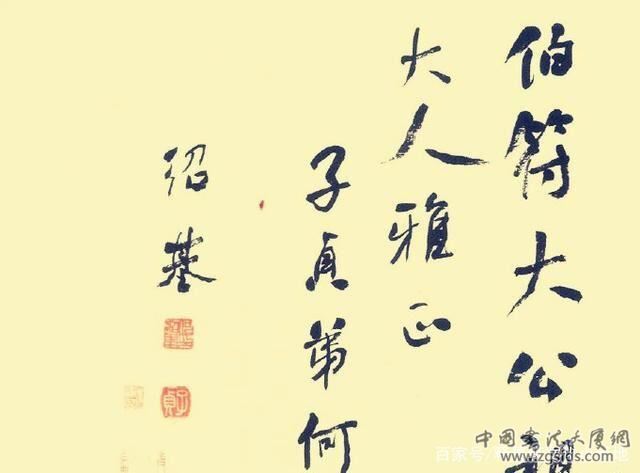 伯符大公
大人雅正
子貞弟何
绍基
子貞
中國書法大廈網
www.zgsfds.com
百家号